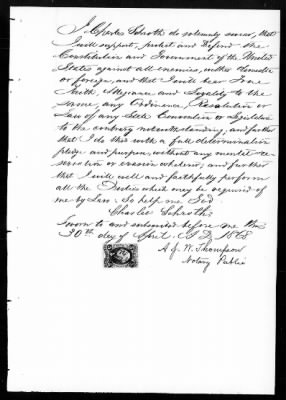 I Charles Schroth do solemnly swear, that
I will support, protect and Defend the
Constitution and Government of the United
States against all enemies, either Domestic
or foreign, and that I will bear True
Faith, Allegiance and Loyalty to the
same, any Ordinance, Resolution or
Law of any State Convention or Legislature
to the contrary notwithstanding, and further
that I do this with a full determination
pledge and purpose, without any mental re-
servation or evasion whatever, and further
that I will well and faithfully perform
all the Duties which may be required of
me by Law. So help me God.
Charles Schroth.
Sworn to and subscribed before me this
30th day of April A.D. 1868
A. J. W. Thompson
Notary Public